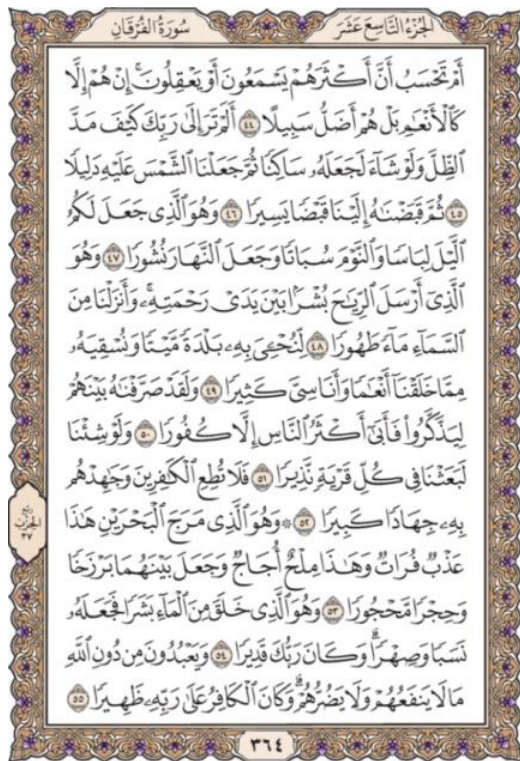 الجُزْءُ التَّاسِعَ عَشَرَ
سُورَةُ الفُرْقَانِ
أَمْ تَحْسَبُ أَنَّ أَكْثَرَهُمْ يَسْمَعُونَ أَوْ يَعْقِلُونَۚ إِنْ هُمْ إِلَّا
كَٱلْأَنْعَٰمِ بَلْ هُمْ أَضَلُّ سَبِيلًا ٤٤ أَلَمْ تَرَ إِلَىٰ رَبِّكَ كَيْفَ مَدَّ
ٱلظِّلَّ وَلَوْ شَآءَ لَجَعَلَهُۥ سَاكِنًا ثُمَّ جَعَلْنَا ٱلشَّمْسَ عَلَيْهِ دَلِيلًا
٤٥ ثُمَّ قَبَضْنَٰهُ إِلَيْنَا قَبْضًا يَسِيرًا ٤٦ وَهُوَ ٱلَّذِى جَعَلَ لَكُمُ
ٱلَّيْلَ لِبَاسًا وَٱلنَّوْمَ سُبَاتًا وَجَعَلَ ٱلنَّهَارَ نُشُورًا ٤٧ وَهُوَ
ٱلَّذِىٓ أَرْسَلَ ٱلرِّيَٰحَ بُشْرًۢا بَيْنَ يَدَىْ رَحْمَتِهِۦۚ وَأَنزَلْنَا مِنَ
ٱلسَّمَآءِ مَآءً طَهُورًا ٤٨ لِّنُحْـِۧىَ بِهِۦ بَلْدَةً مَّيْتًا وَنُسْقِيَهُۥ
مِمَّا خَلَقْنَآ أَنْعَٰمًا وَأَنَاسِىَّ كَثِيرًا ٤٩ وَلَقَدْ صَرَّفْنَٰهُ بَيْنَهُمْ
لِيَذَّكَّرُوا۟ فَأَبَىٰٓ أَكْثَرُ ٱلنَّاسِ إِلَّا كُفُورًا ٥٠ وَلَوْ شِئْنَا
لَبَعَثْنَا فِى كُلِّ قَرْيَةٍ نَّذِيرًا ٥١ فَلَا تُطِعِ ٱلْكَٰفِرِينَ وَجَٰهِدْهُم
بِهِۦ جِهَادًا كَبِيرًا ٥٢ ۞ وَهُوَ ٱلَّذِى مَرَجَ ٱلْبَحْرَيْنِ هَٰذَا
عَذْبٌ فُرَاتٌ وَهَٰذَا مِلْحٌ أُجَاجٌ وَجَعَلَ بَيْنَهُمَا بَرْزَخًا
وَحِجْرًا مَّحْجُورًا ٥٣ وَهُوَ ٱلَّذِى خَلَقَ مِنَ ٱلْمَآءِ بَشَرًا فَجَعَلَهُۥ
نَسَبًا وَصِهْرًاۗ وَكَانَ رَبُّكَ قَدِيرًا ٥٤ وَيَعْبُدُونَ مِن دُونِ ٱللَّهِ
مَا لَا يَنفَعُهُمْ وَلَا يَضُرُّهُمْۗ وَكَانَ ٱلْكَافِرُ عَلَىٰ رَبِّهِۦ ظَهِيرًا ٥٥
رُبْع
الحِزْب
٣٧
٣٦٤